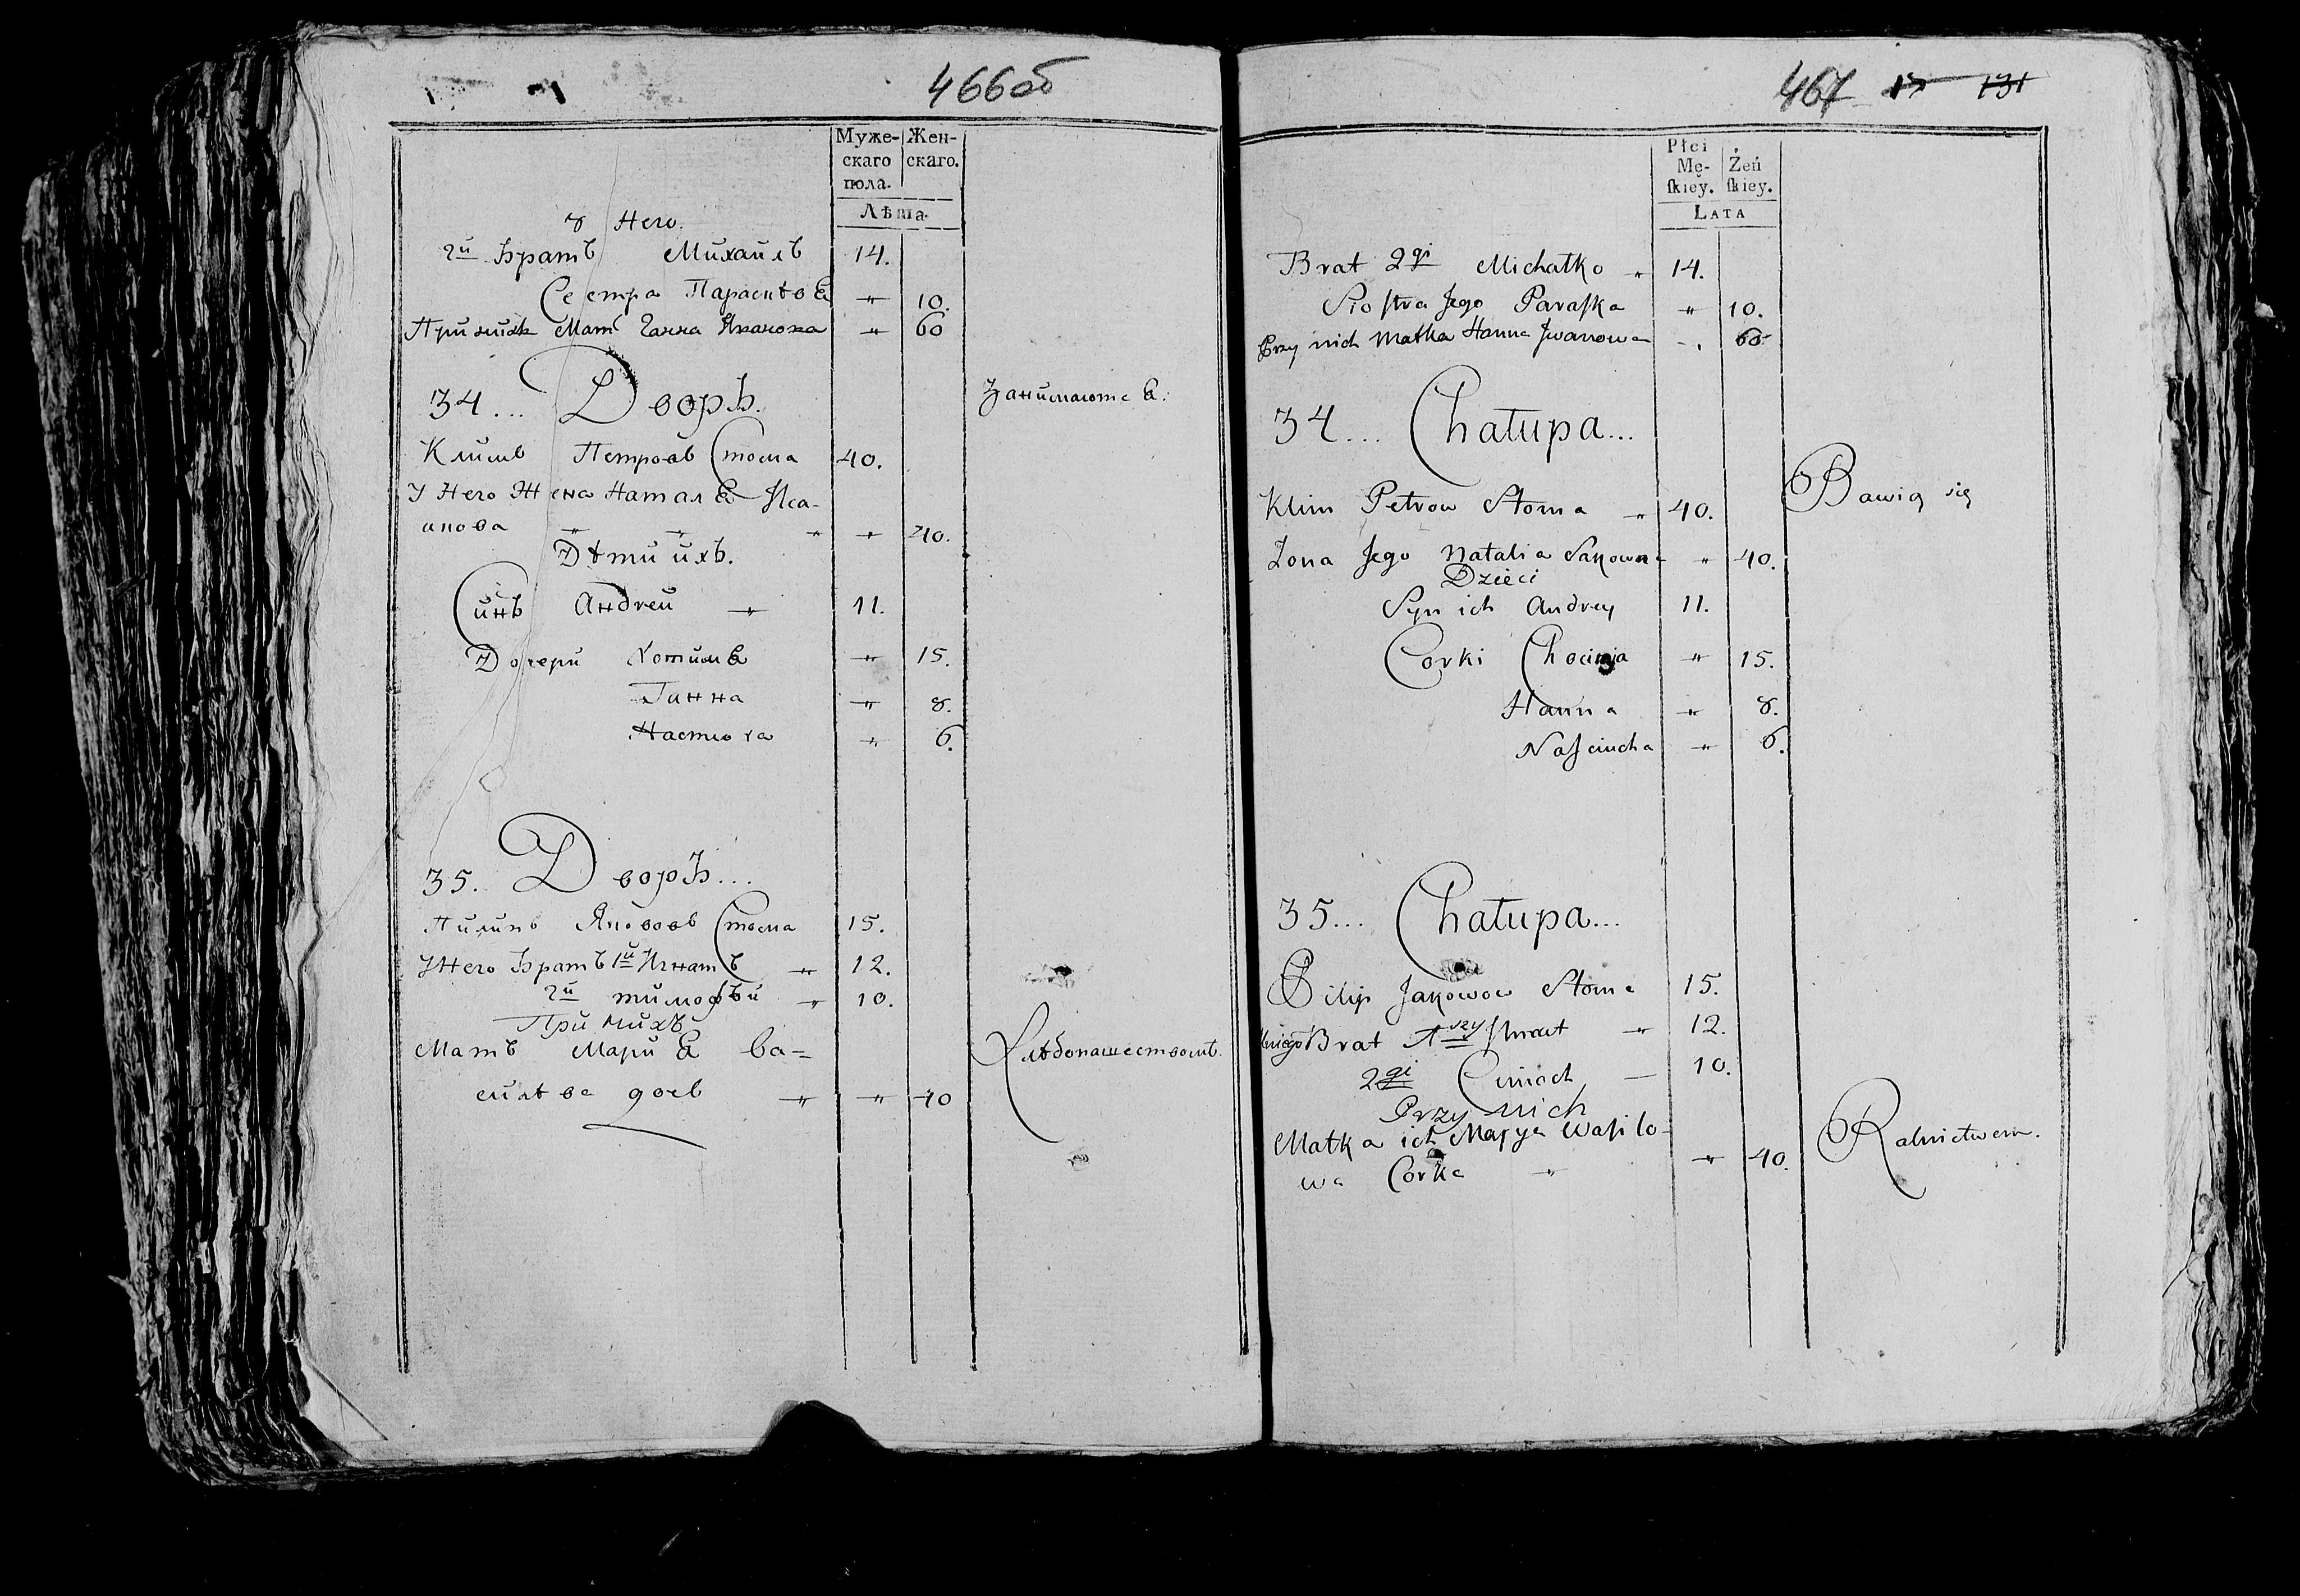 466об
Муже- Жен-
скаго скаго.
пола.
Лѣта.
у Него
2й Братъ Михайлъ 14.
Сестра Парасквѣя " 10.
При нихъ Мать Ганна Иванова " 60
34... Дворъ.
Занимаются.
Климъ Петровъ Стома 40.
У Него Жена Наталя Иса-
акова " " " " 40.
Дѣти ихъ.
Синъ Андрей " 11.
Дочери Хотимя " 15.
Ганна " 8.
Настюха " 6.
35. Дворъ...
Пилипъ Якововъ Стома 15.
У Него Братъ 1й Игнатъ " 12.
2й тимофѣй " 10.
При нихъ
Мать Мария Ва=
силѣва дочь " " 40
Хлѣбопашествомъ.
467 13 131
Płci
Mę- Żeń
ſkiey. ſkiey.
LATA
Brat 2gi Michałko " 14.
Sioſtra Jego Paraſka " 10.
Przy nich Matka Hanna Jwanowa " 60
34... Chałupa...
Klim Petrow Stoma " 40.
Bawią się
Żona Jego Natalia Sakowna " 40.
Dzieci
Syn ich Andrey 11.
Corki Chocimja " 15.
Hanna " 8.
Naſciucha " 6.
35... Chałupa...
Pilip Jakowow Stoma 15.
Brat 1szy Ihnat " 12.
2gi Cimoch — 10.
Przy nich
Matka ich Marya Waſilo-
wa Corka " " 40.
Rolnictwem.